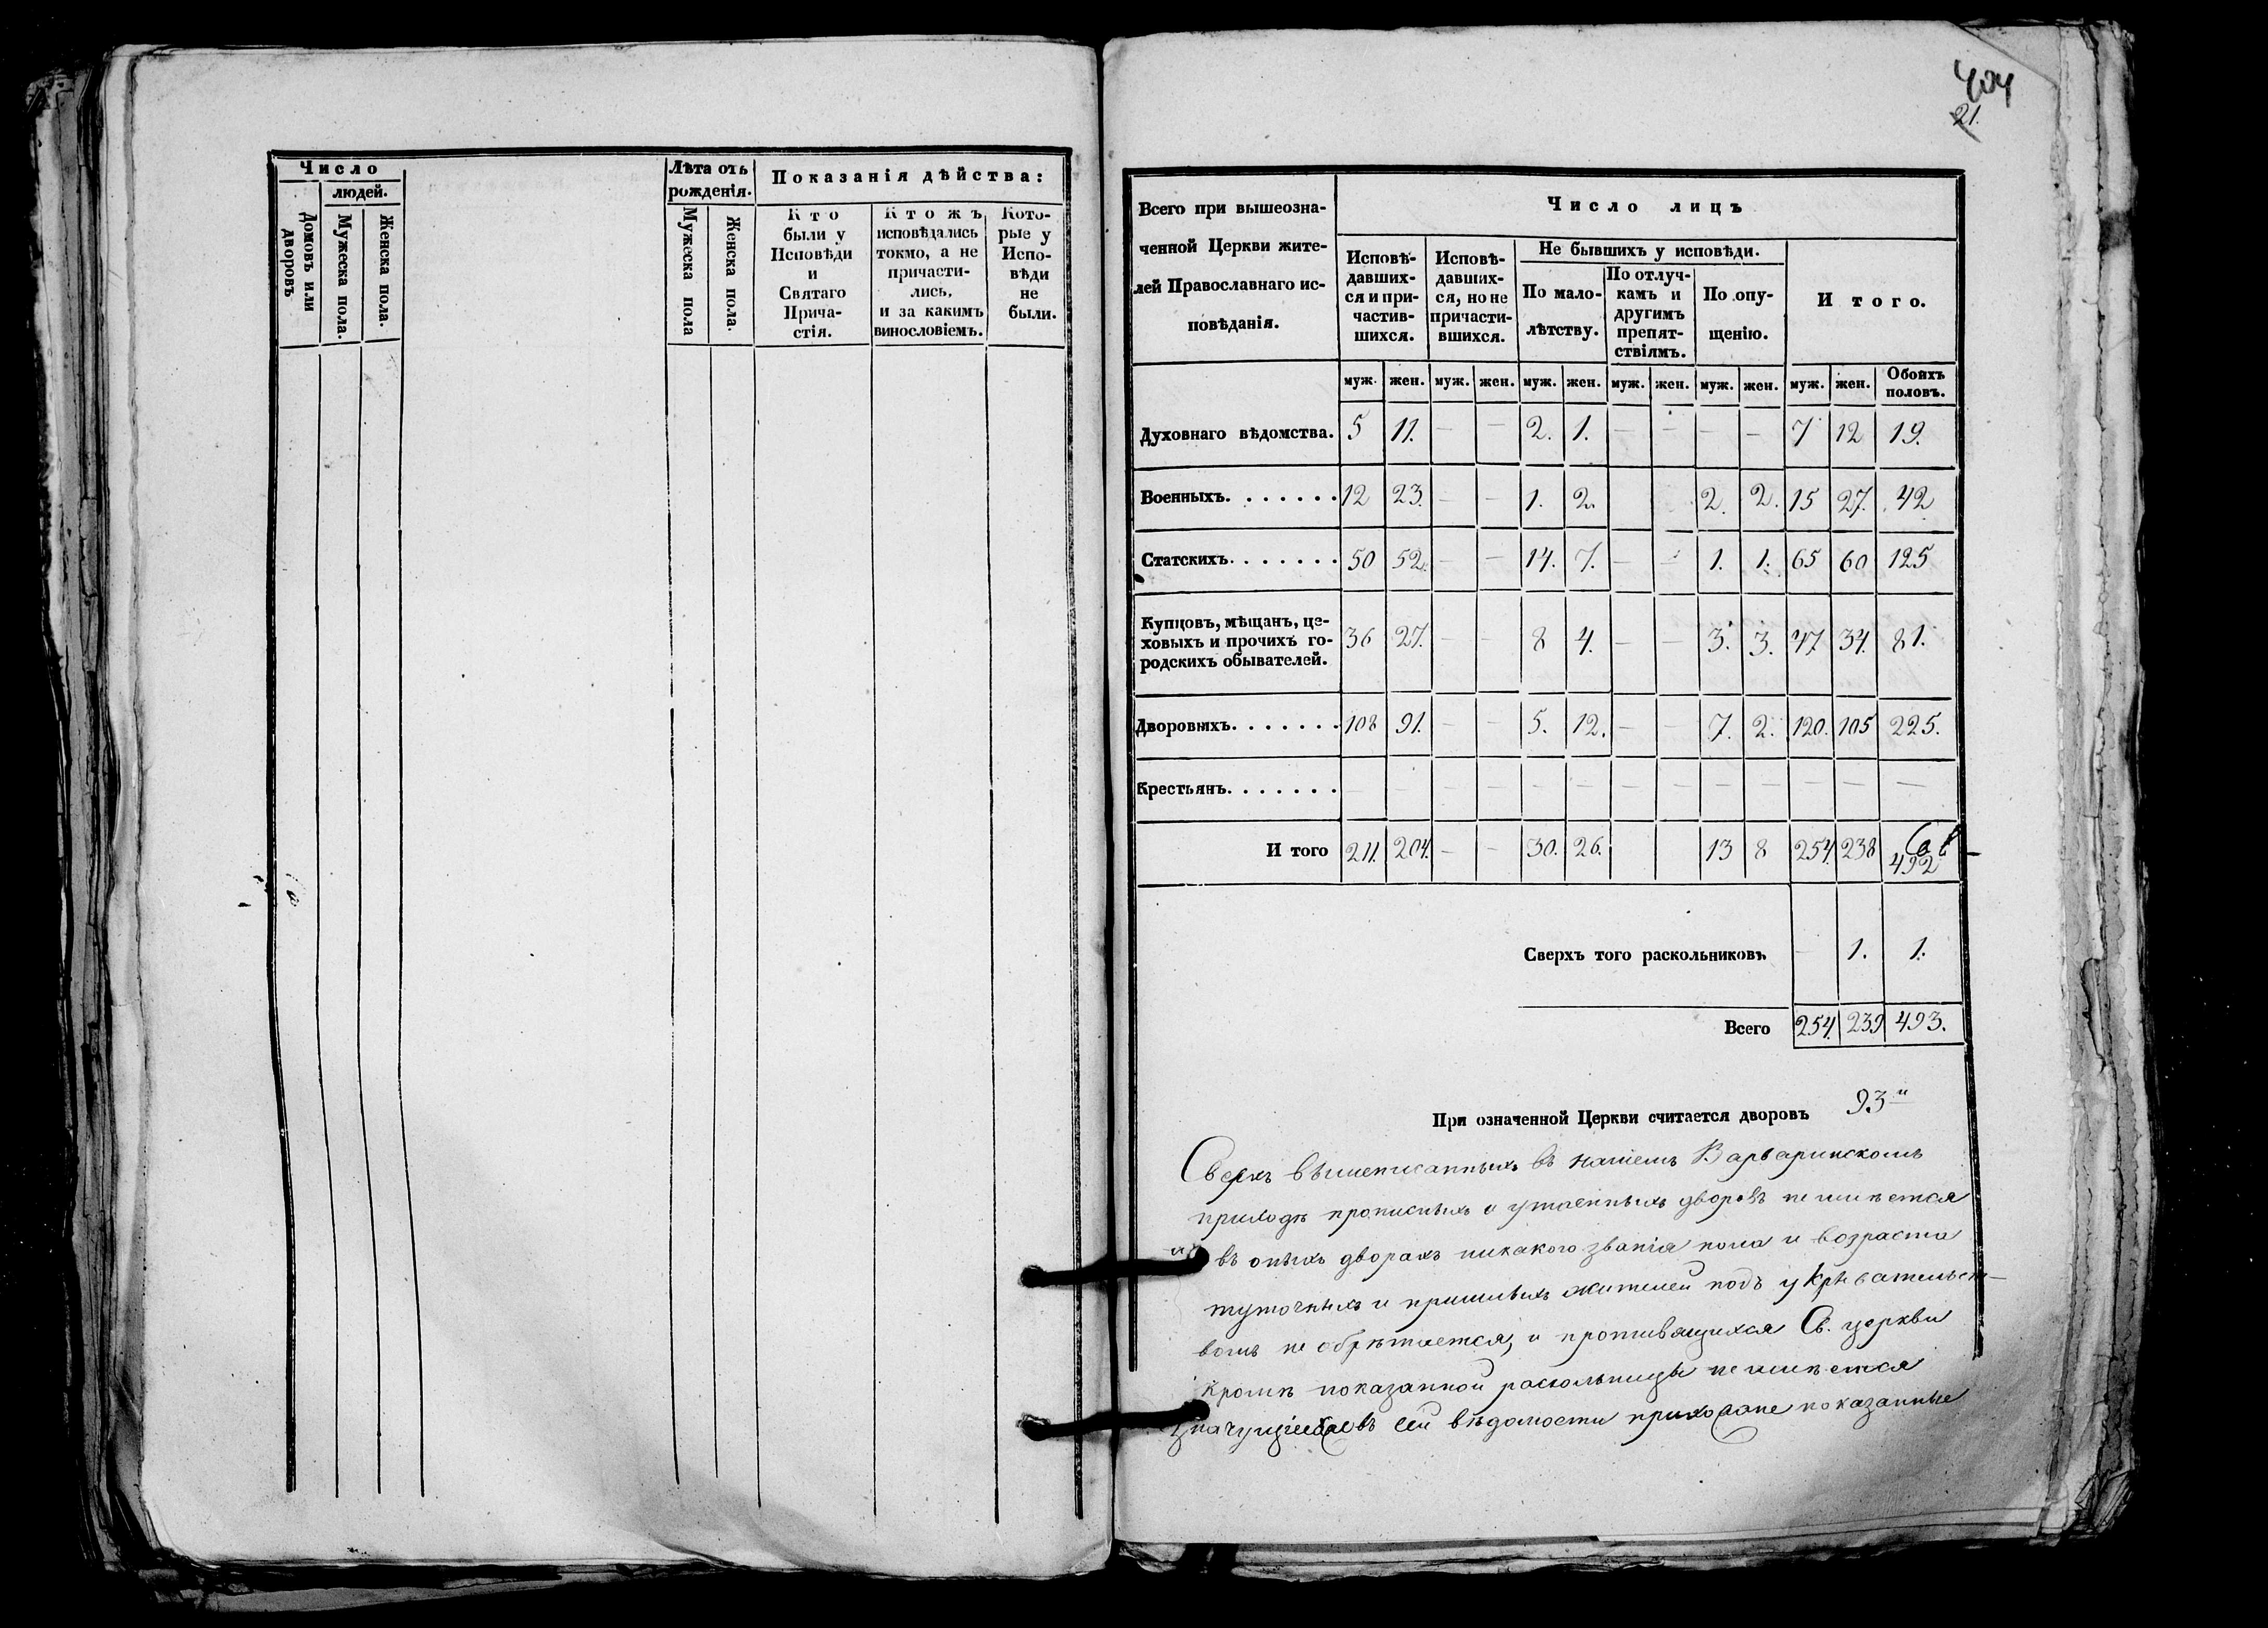 Число
людей.
Домовъ или дворовъ
Мужеска пола.
Женска пола.
Лѣта отъ
рожденія.
Мужеска пола
Женска пола.
Показанія дѣйства:
Кто
были у
Исповѣди
и
Святаго
Прича-
стія.
Ктожъ
исповѣдались
токмо, а не
причасти-
лись,
и за какимъ
винословіемъ.
Кото-
рые у
Испо-
вѣди
не
были.
404
21.
Всего при вышеозна-
ченной Церкви жите-
лей Православнаго ис-
повѣданія.
Число лицъ
Исповѣ-
давших-
ся и при-
частив-
шихся.
Исповѣ-
давших-
ся, но не
причасти-
вшихся.
Не бывшихъ у исповѣди.
По мало-
лѣтству.
По отлуч-
камъ и
другимъ
препят-
ствіямъ.
По опу-
щенію.
Итого.
муж. жен. муж. жен. муж. жен. муж. жен. муж. жен. муж. жен. Обоихъ половъ.
Духовнаго вѣдомства. 5 11. — — 2. 1. — — — — 7 12 19.
Военныхъ. . . . . . . 12 23. — — 1. 2. 2. 2. 15 27. 42
Статскихъ. . . . . . . 50 52. — — 14. 7. — — 1. 1. 65 60 125
Купцовъ, мѣщанъ, це-
ховыхъ и прочихъ го-
родскихъ обывателей.
36 27. — — 8 4. — — 3. 3. 47 34. 81.
Дворовыхъ. . . . . . . 108 91. — — 5. 12. — — 7. 2. 120. 105 225.
Крестьянъ. . . . . . . — — — — — — — — — — — — —
И того 211. 204. — — 30. 26. 13 8 254 238 492
Сверхъ того раскольниковъ — 1. 1.
Всего 254. 239 493.
При означенной Церкви считается дворовъ 93
Сверхъ вышеписанныхъ въ нашемъ Варваринскомъ
приходѣ прописныхъ и утаенныхъ дворовъ не имѣется
въ оныхъ дворахъ никакого званія пола и возраста
туточныхъ и пришлыхъ жителей подъ укрывательст-
вомъ не обрѣтается, и противящихся Св. церкви
кромѣ показанной раскольницы не имѣется
значущіеся въ сей вѣдомости прихожане показанные